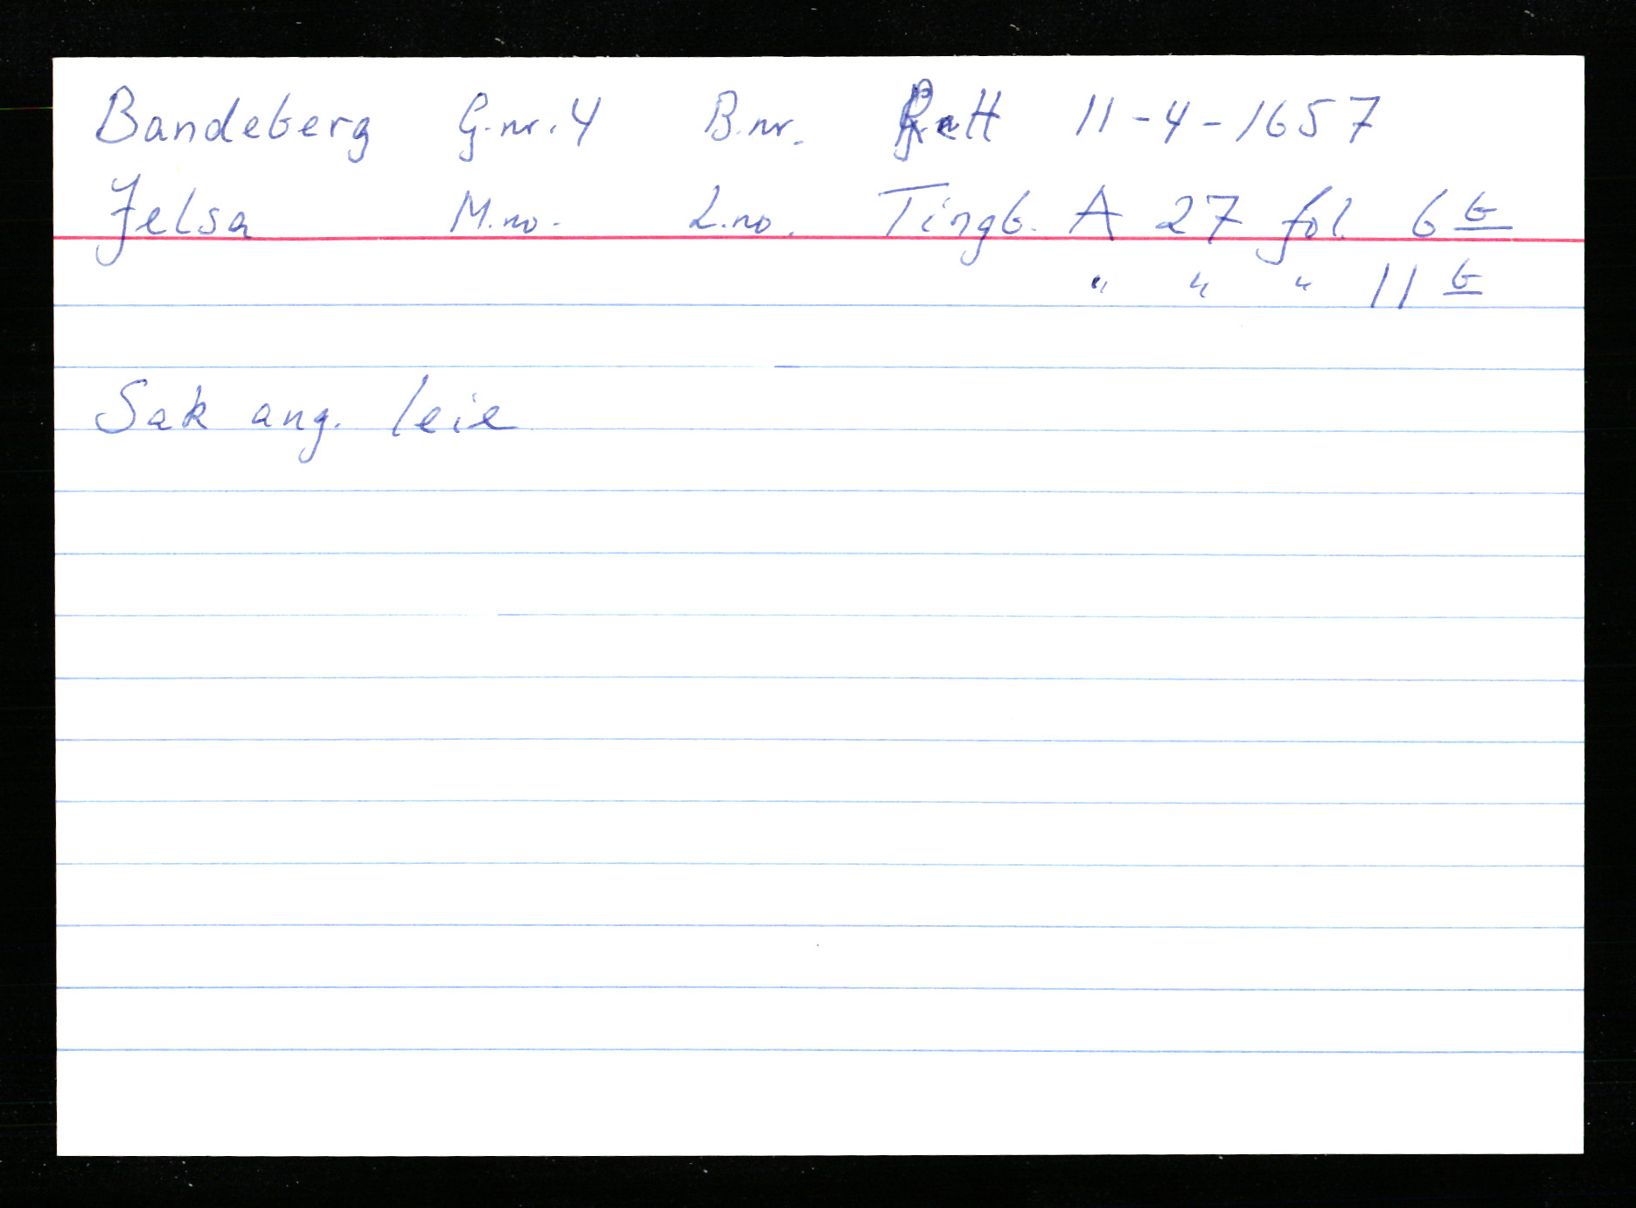 Bandeberg G.nr. 4 B.nr. Rett 11-4-1657
Jelsa M.no. L.no. Tingb. A 27 fol. 6 b
" " " 11 b
Sak ang. leie